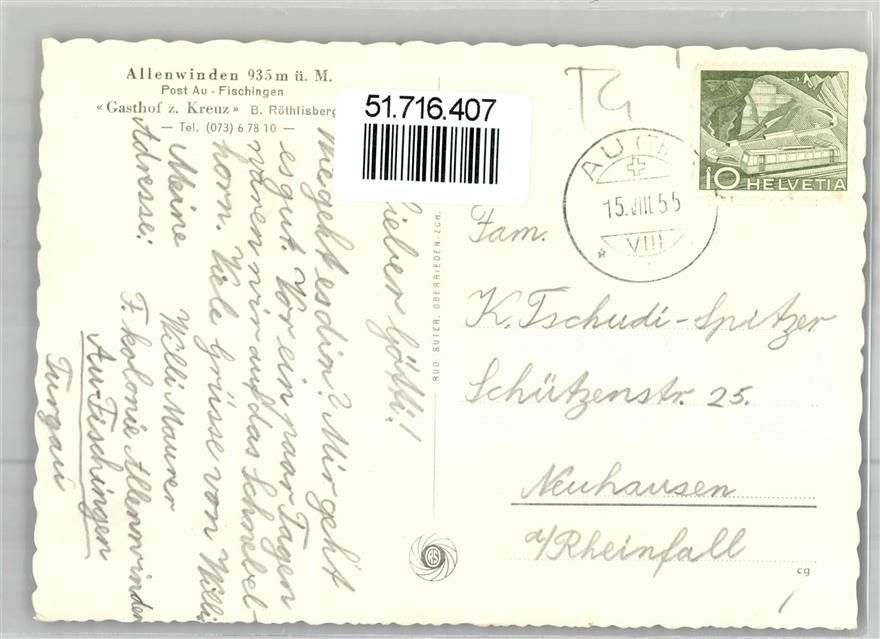 Allenwinden 935 m ü. M.
Post Au - Fischingen
«Gasthof z. Kreuz» B. Röthlisberg
— Tel. (073) 6 78 10 —
51.716.407
TG
AU (TH
15.VIII.55
VIII
10 HELVETIA
Lieber Götti!
Wie geht es dir? Mir geht
es gut. Vor ein paar Tagen
waren wir auf das Schnebel-
horn. Viele Grüsse von Willi
Meine
Adresse:
Willi Maurer
F. kolonie Allenwinden
Au-Fischingen
Turgau
RUD SUTER, OBERRIEDEN-ZCH.
Fam.
K. Tschudi-Spitzer
Schützenstr. 25.
Neuhausen
a/Rheinfall
cg